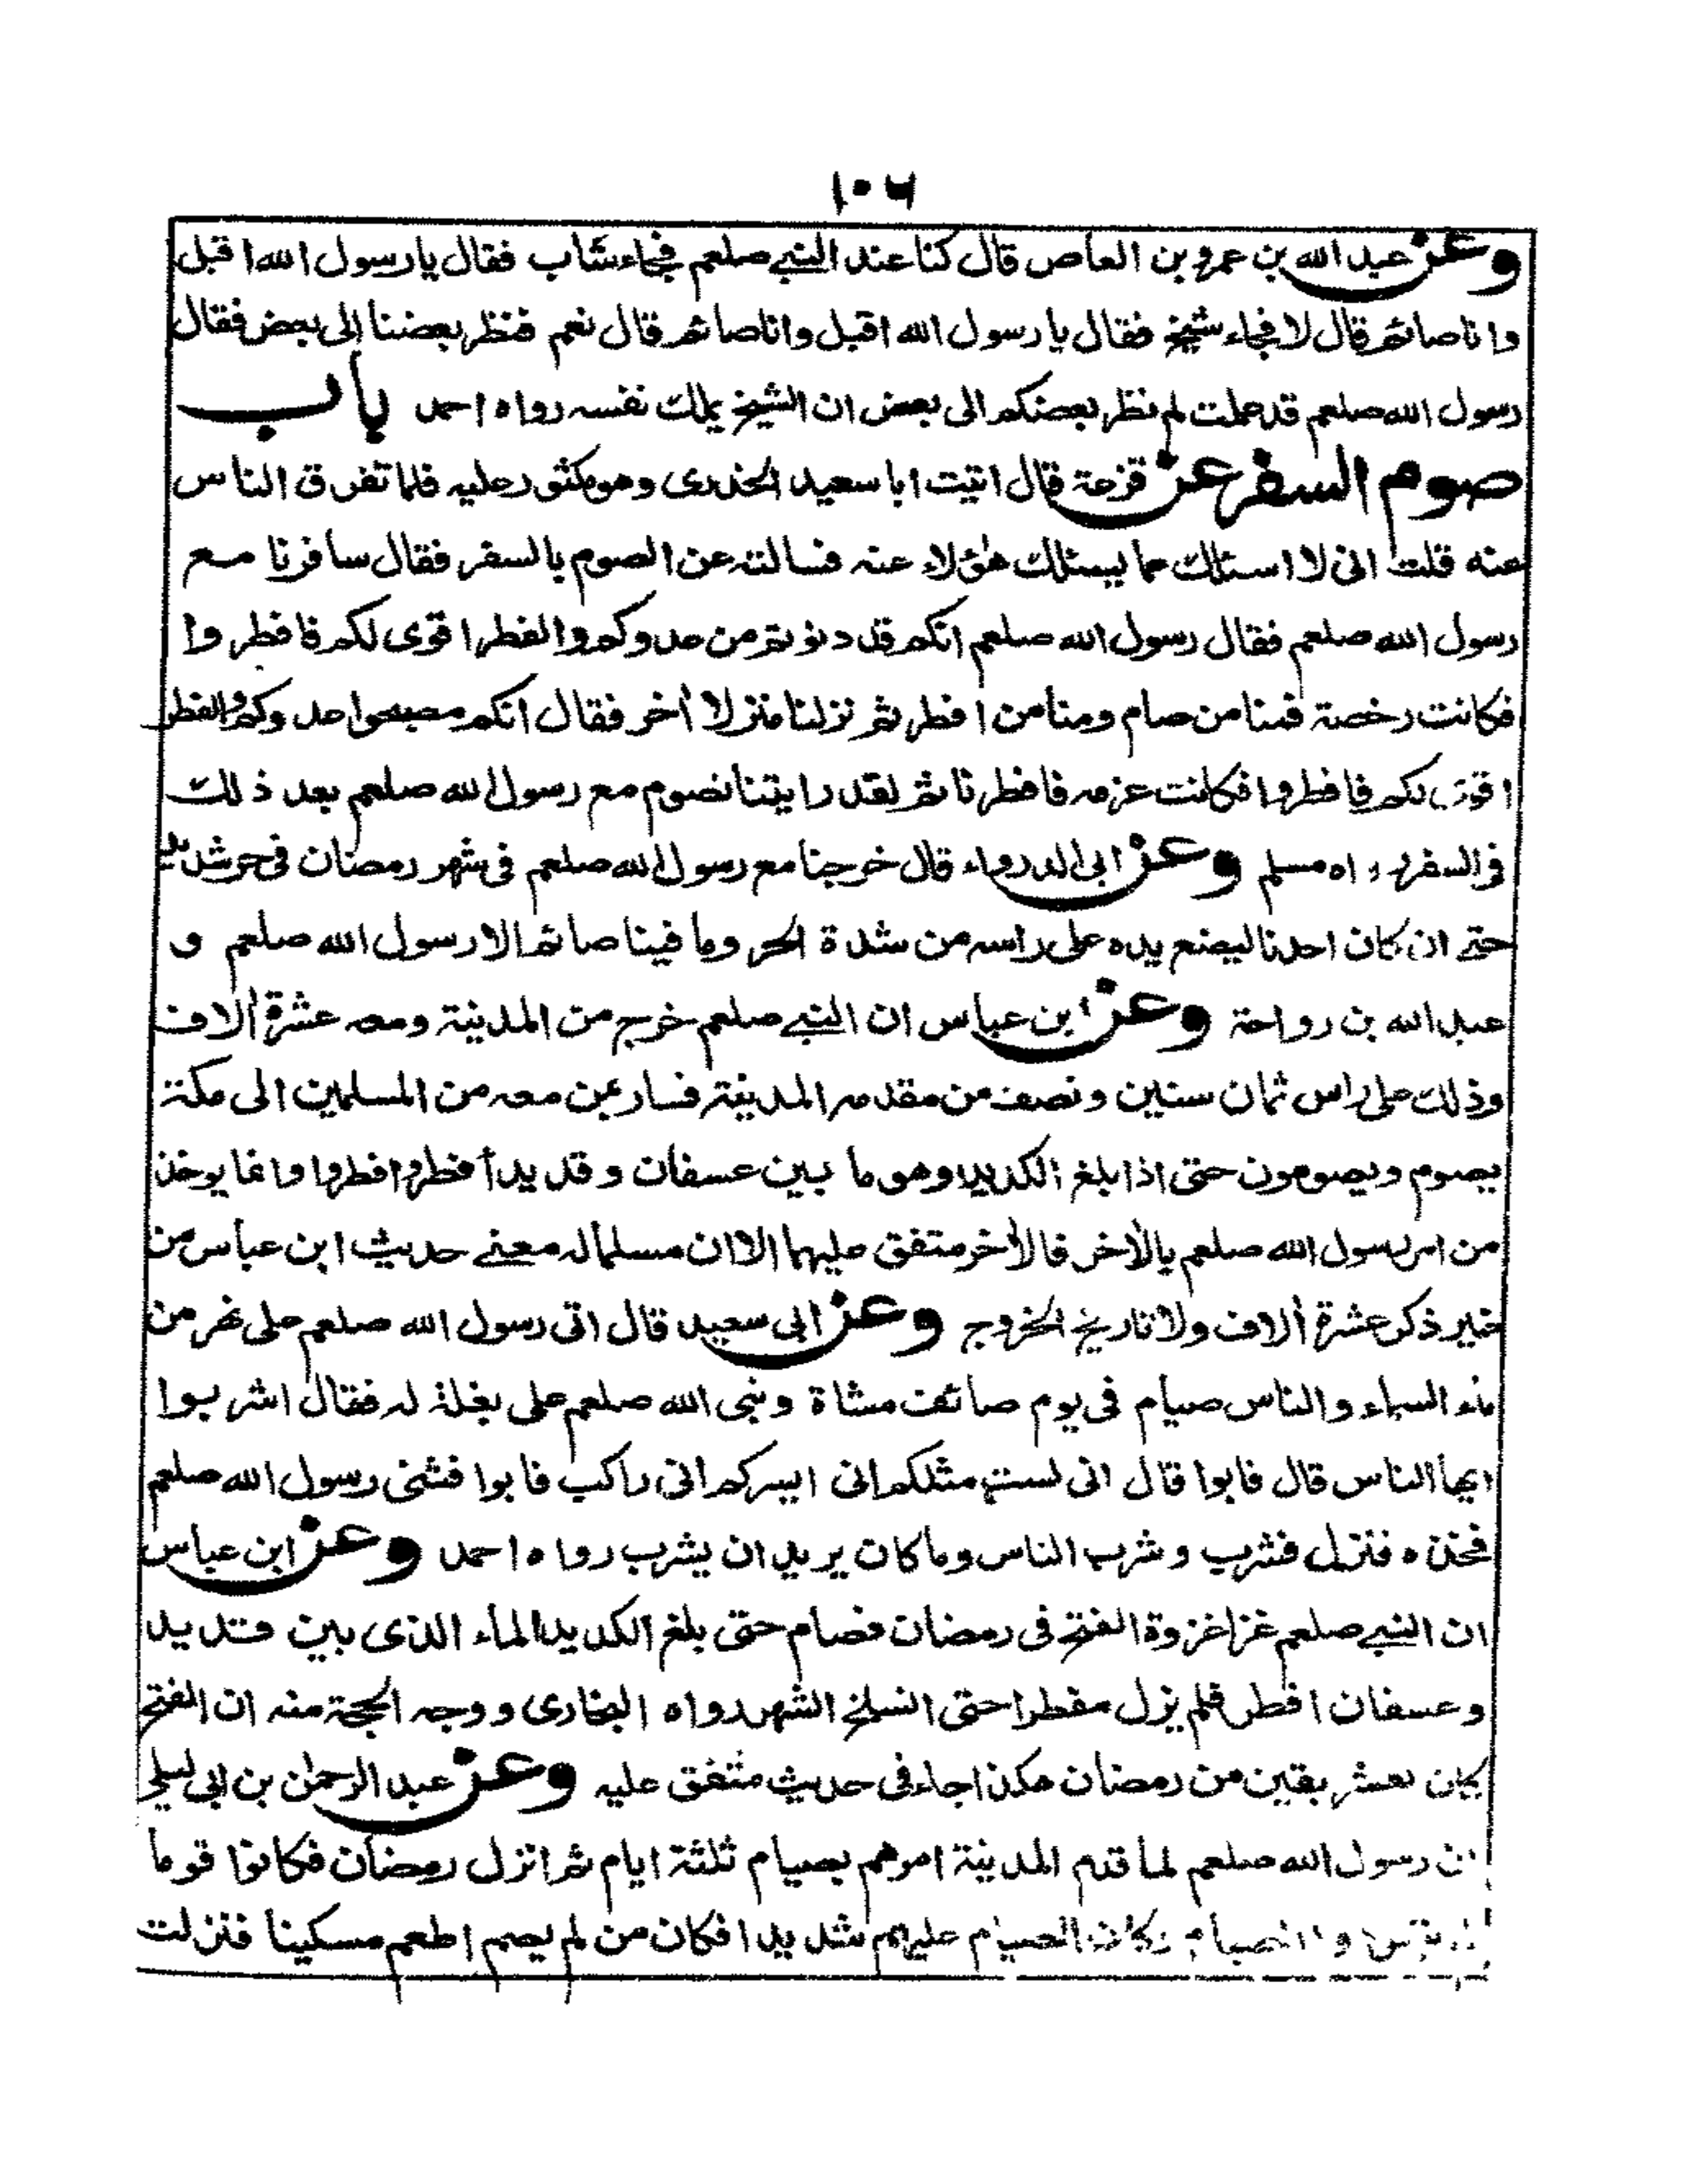 ١٠٦
وعن عبد الله بن عمرو بن العاص قال كنا عند النبي صلعم فجاء شاب فقال يا رسول الله اقبل
وانا صائم قال لا فجاء شيخ فقال يا رسول الله اقبل وانا صائم قال نعم فنظر بعضنا الى بعض فقال
رسول الله صلعم قد علمت لم نظر بعضكم الى بعض ان الشيخ يملك نفسه رواه احمد باب
صوم السفر عن قزعة قال اتيت ابا سعيد الخدرى وهو مكثور عليه فلما تفرق الناس
عنه قلت انى لا اسئلك عما يسئلك هؤلاء عنه فسالته عن الصوم بالسفر فقال سافرنا مع
رسول الله صلعم فقال رسول الله صلعم انكم قد دنوتم من عدوكم والفطر اقوى لكم فافطروا
فكانت رخصة فمنا من صام ومنا من افطر ثم نزلنا منزلا أخر فقال انكم مصبحوا عدوكم والفطر
اقوى لكم فافطروا فكانت عزمه فافطرنا ثم لقد رايتنا نصوم مع رسول الله صلعم بعد ذلك
فى السفر رواه مسلم وعن ابى الدرداء قال خرجنا مع رسول الله صلعم فى شهر رمضان فى حر شديد
حتى ان كان احدنا ليضع يده على راسه من شدة الحر وما فينا صائم الا رسول الله صلعم و
عبد الله بن رواحة وعن ابن عباس ان النبي صلعم خرج من المدينة ومعه عشرة ألاف
وذلك على راس ثمان سنين ونصف من مقدمه المدينة فسار بمن معه من المسلمين الى مكة
يصوم ويصومون حتى اذا بلغ الكديد وهو ما بين عسفان وقديد أفطر وافطروا وانما يوخذ
من امر رسول الله صلعم بالأخر فالأخر متفق عليهما الا ان مسلما له معنى حديث ابن عباس من
غير ذكر عشرة ألاف ولا تاريخ الخروج وعن ابى سعيد قال اتى رسول الله صلعم على نهر من
ماء السماء والناس صيام فى يوم صائف مشاة ونبى الله صلعم على بغلة له فقال اشربوا
ايها الناس قال فابوا قال انى لست مثلكم انى ايسركم انى راكب فابوا فثنى رسول الله صلعم
فخذه فنزل فشرب وشرب الناس وما كان يريد ان يشرب رواه احمد وعن ابن عباس
ان النبي صلعم غزا غزوة الفتح فى رمضان فصام حتى بلغ الكديد الماء الذى بين قديد
وعسفان افطر فلم يزل مفطرا حتى انسلخ الشهر رواه البخارى ووجه الحجة منه ان الفتح
كان لعشر بقين من رمضان هكذا جاء فى حديث متفق عليه وعن عبد الرحمن بن ابى ليلى
ان رسول الله صلعم لما قدم المدينة امرهم بصيام ثلثة ايام ثم انزل رمضان فكانوا قوما
الصيام وكان الصيام عليهم شديدا فكان من لم يصم اطعم مسكينا فنزلت